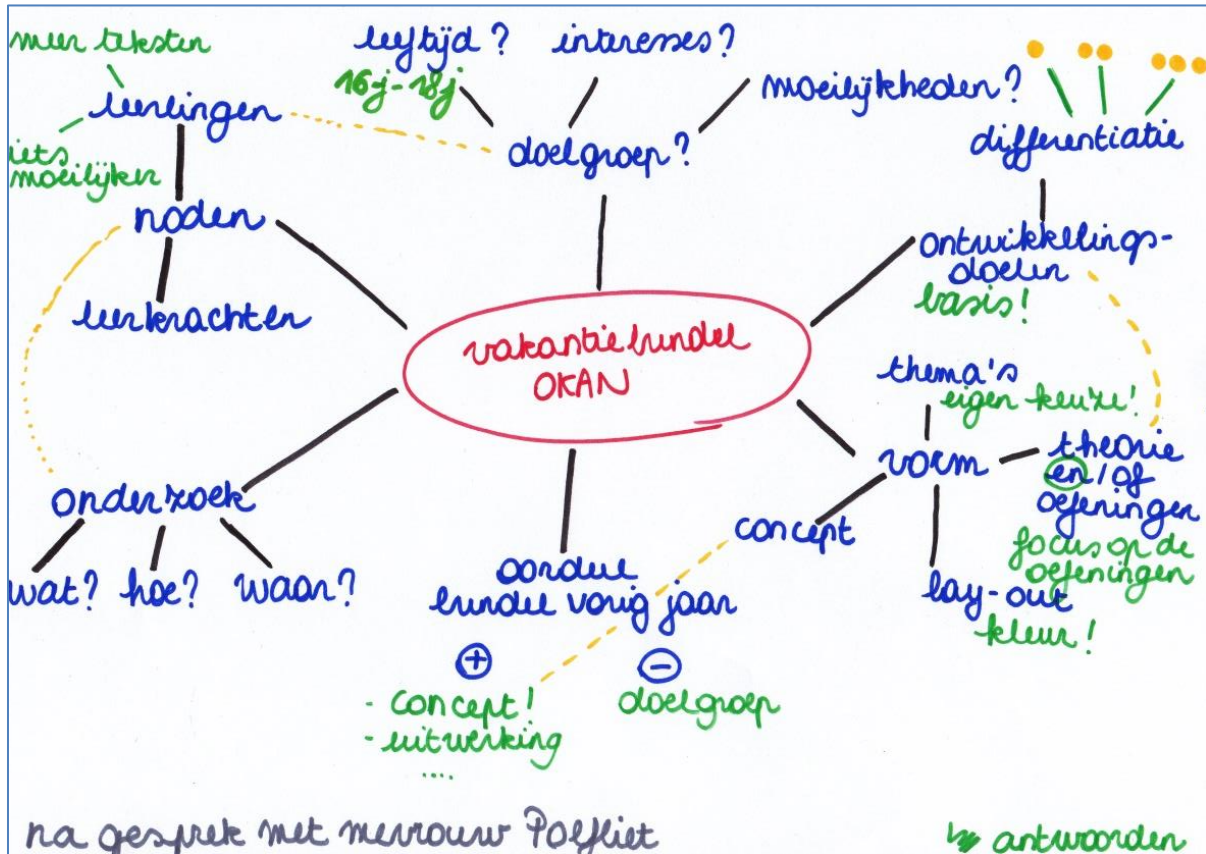 meer teksten
leerlingen
iets
moeilijker
noden
leerkrachten
leeftijd?
16j-18j
interesses?
moeilijkheden?
doelgroep?
differentiatie
ontwikkelings-
doelen
basis!
vakantiebundel
OKAN
thema's
eigen keuze!
vorm
theorie
en/of
oefeningen
focus op de
oefeningen
lay-out
kleur!
concept
onderzoek
wat? hoe? waar?
oordeel
bundel vorig jaar
+
- concept!
- uitwerking
....
-
doelgroep
na gesprek met mevrouw Polfliet
↳ antwoorden